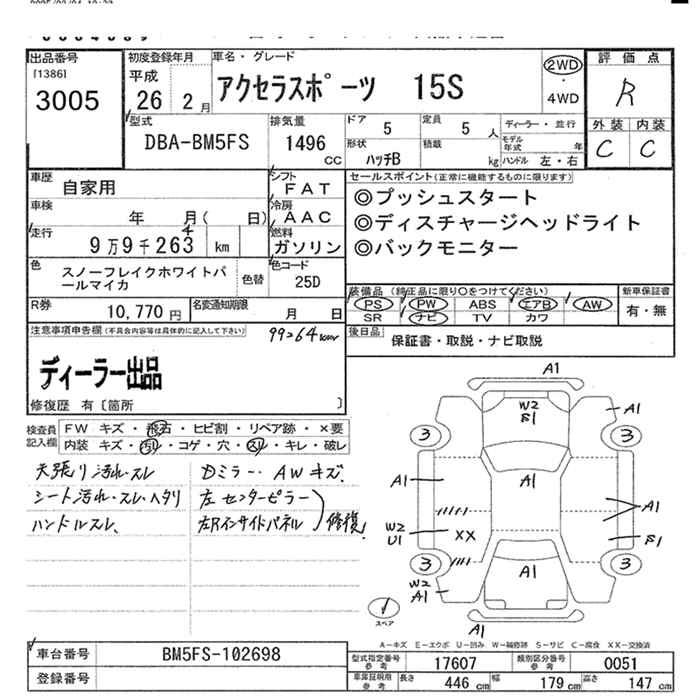 出品番号
[1386]
3005
初度登録年月
平成
26 2 月
車名・グレード
アクセラスポーツ 15S
2WD
・
4WD
評価点
R
外装 内装
C C
型式
DBA-BM5FS
排気量
1496
CC
ドア
5
定員
5 人
形状
ハッチB
積載
kg
ディーラー・並行
モデル年式 年
ハンドル 左・右
車歴
自家用
シフト
FAT
車検
年 月( 日)
冷房
AAC
走行
9万9千263 km
4
燃料
ガソリン
色
スノーフレイクホワイトパールマイカ
色替
色コード
25D
R券
10,770 円
名変通知期限
月 日
セールスポイント(正常に機能するものに限ります)
◎プッシュスタート
◎ディスチャージヘッドライト
◎バックモニター
装備品 (純正品に限り○をつけてください)
PS PW ABS エアB AW
SR ナビ TV カワ
新車保証書
有・無
後日品
保証書・取説・ナビ取説
注意事項申告欄(不具合内容等は具体的に記入して下さい)
99264km
ディーラー出品
修復歴 有〔箇所 〕
検査員記入欄
FW キズ・飛石・ヒビ割・リペア跡・×要
内装 キズ・汚れ・コゲ・穴・スレ・キレ・破レ
天張り汚れ・スレ
シート汚れ・スレ・ヘタリ
ハンドルスレ、
Dミラー・AWキズ.
左センターピラー
左Rインサイドパネル
修復!
A1
W2
S1
A1
3
3
A1
A1
A1
W2
U1
XX
S1
3
3
A1
W2
A1
A1
スペア
A-キズ E-エクボ U-凹み W-補修跡 S-サビ C-腐食 XX-交換済
車台番号
BM5FS-102698
登録番号
型式指定番号
参考
17607
類別区分番号
参考
0051
車庫証明用
参考
長さ
446 cm
幅
179 cm
高さ
147 cm